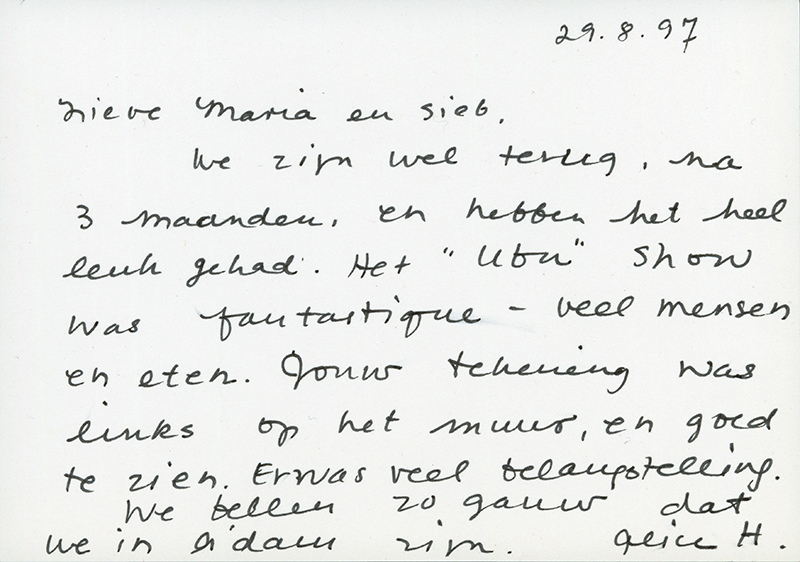 29.8.97
Lieve Maria en Sieb,
We zijn wel terug, na
3 maanden, en hebben het heel
leuk gehad. Het "Ubu" Show
was fantastique - veel mensen
en eten. Jouw tekening was
links op het muur, en goed
te zien. Er was veel belangstelling.
We bellen zo gauw dat
we in A'dam zijn. Alice H.